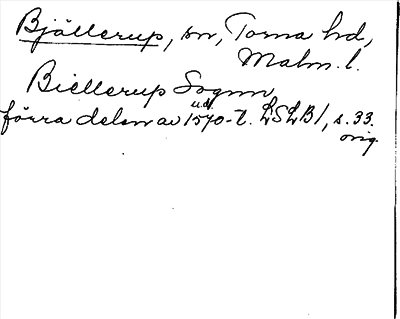 Bjällerup, sn, Torna hd,
Malm. l.
Biellerup Sognn
u.d.
förra delen av 1570-t. LSLB 1, s. 33.
orig.